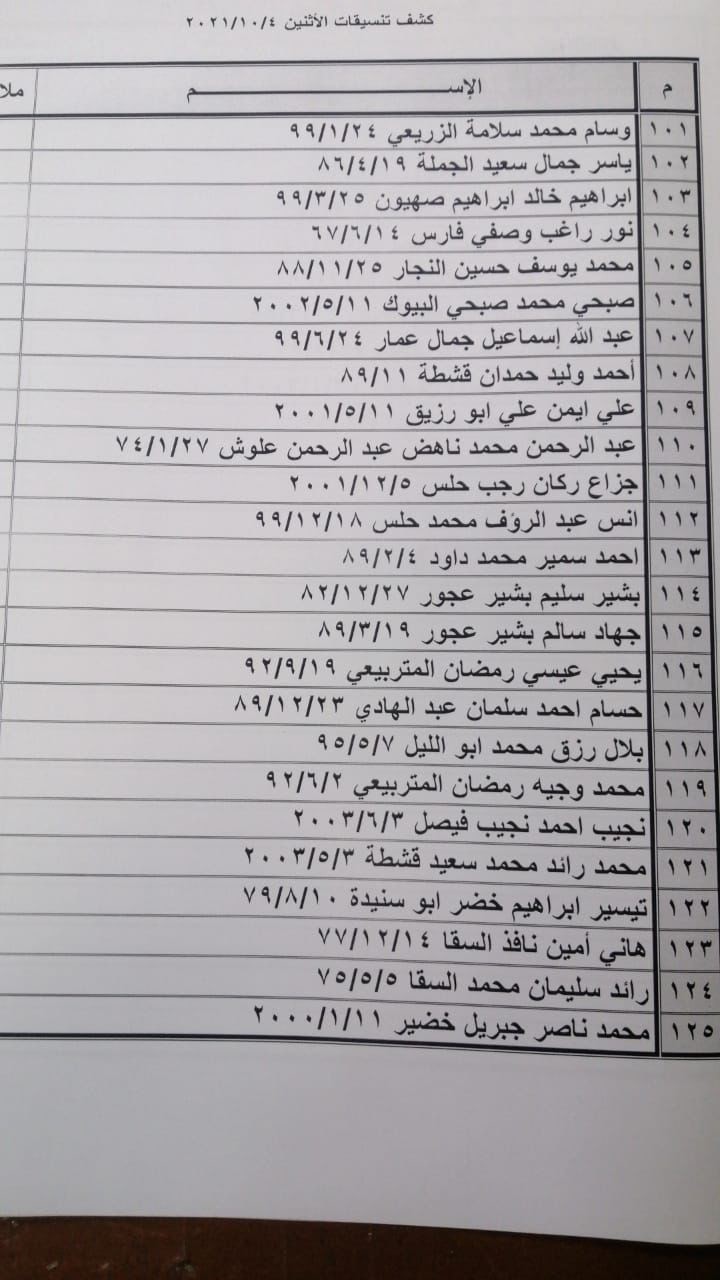 كشف تنسيقات الأثنين ٢٠٢١/١٠/٤
م الإســــــــــــــم ملا
١٠١ وسام محمد سلامة الزريعي ٩٩/١/٢٤
١٠٢ ياسر جمال سعيد الجملة ٨٦/٤/١٩
١٠٣ ابراهيم خالد ابراهيم صهيون ٩٩/٣/٢٥
١٠٤ نور راغب وصفي فارس ٦٧/٦/١٤
١٠٥ محمد يوسف حسين النجار ٨٨/١١/٢٥
١٠٦ صبحي محمد صبحي البيوك ٢٠٠٢/٥/١١
١٠٧ عبد الله إسماعيل جمال عمار ٩٩/٦/٢٤
١٠٨ أحمد وليد حمدان قشطة ٨٩/١١
١٠٩ علي ايمن علي ابو رزيق ٢٠٠١/٥/١١
١١٠ عبد الرحمن محمد ناهض عبد الرحمن علوش ٧٤/١/٢٧
١١١ جزاع ركان رجب حلس ٢٠٠١/١٢/٥
١١٢ انس عبد الرؤف محمد حلس ٩٩/١٢/١٨
١١٣ احمد سمير محمد داود ٨٩/٢/٤
١١٤ بشير سليم بشير عجور ٨٢/١٢/٢٧
١١٥ جهاد سالم بشير عجور ٨٩/٣/١٩
١١٦ يحيي عيسي رمضان المتربيعي ٩٢/٩/١٩
١١٧ حسام احمد سلمان عبد الهادي ٨٩/١٢/٢٣
١١٨ بلال رزق محمد ابو الليل ٩٥/٥/٧
١١٩ محمد وجيه رمضان المتربيعي ٩٢/٦/٢
١٢٠ نجيب احمد نجيب فيصل ٢٠٠٣/٦/٣
١٢١ محمد رائد محمد سعيد قشطة ٢٠٠٣/٥/٣
١٢٢ تيسير ابراهيم خضر ابو سنيدة ٧٩/٨/١٠
١٢٣ هاني أمين نافذ السقا ٧٧/١٢/١٤
١٢٤ رائد سليمان محمد السقا ٧٥/٥/٥
١٢٥ محمد ناصر جبريل خضير ٢٠٠٠/١/١١